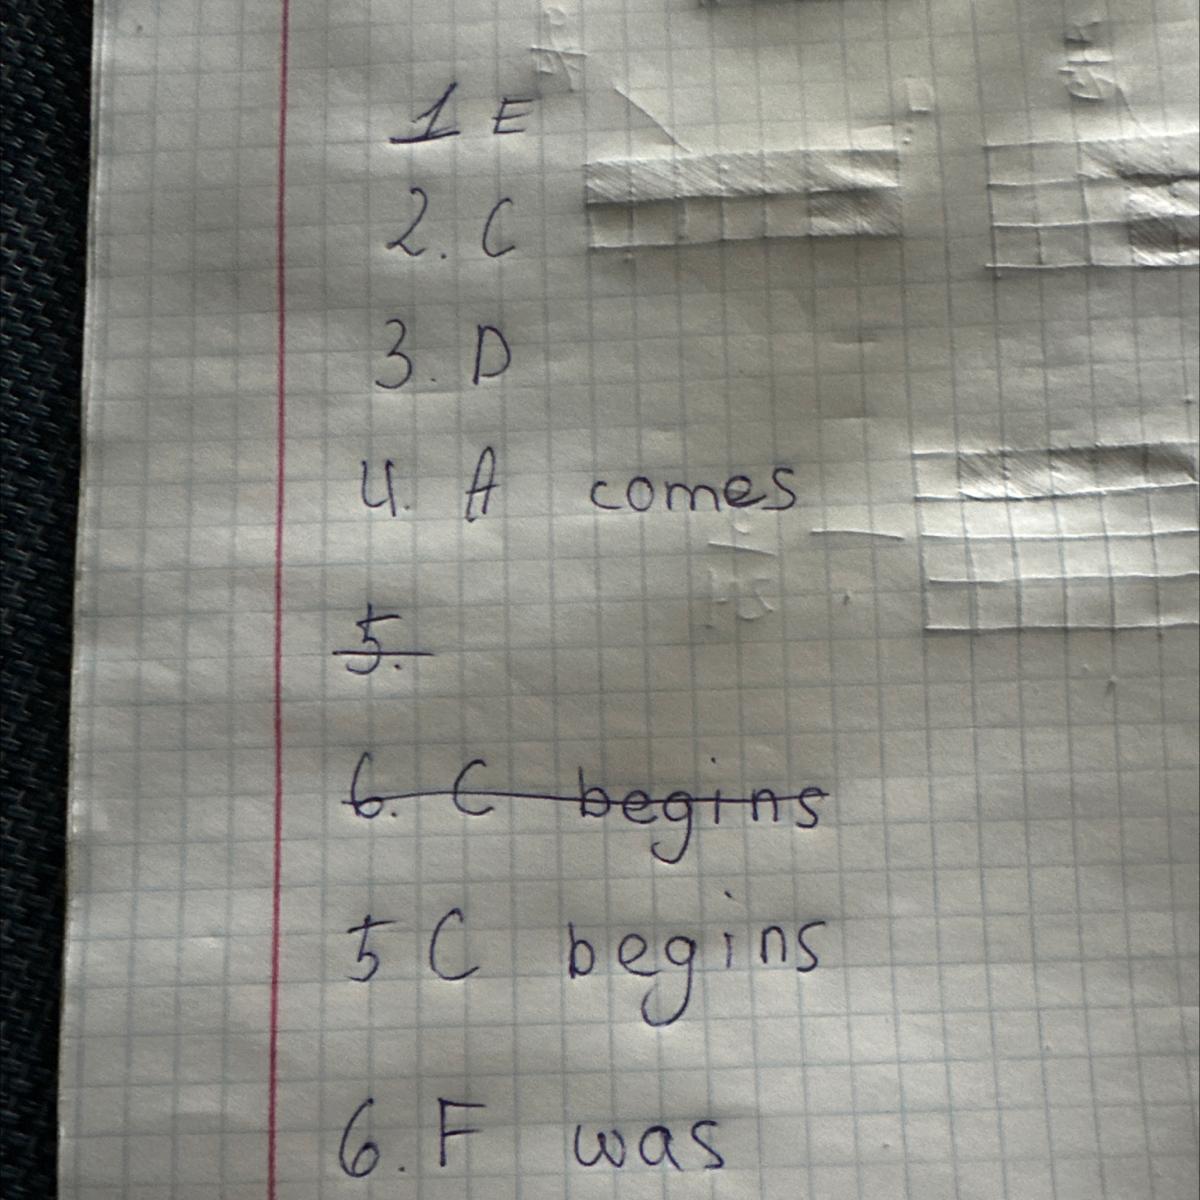 1 E
2. C
3. D
4. A comes
5.
6. C begins
5 C begins
6. F was